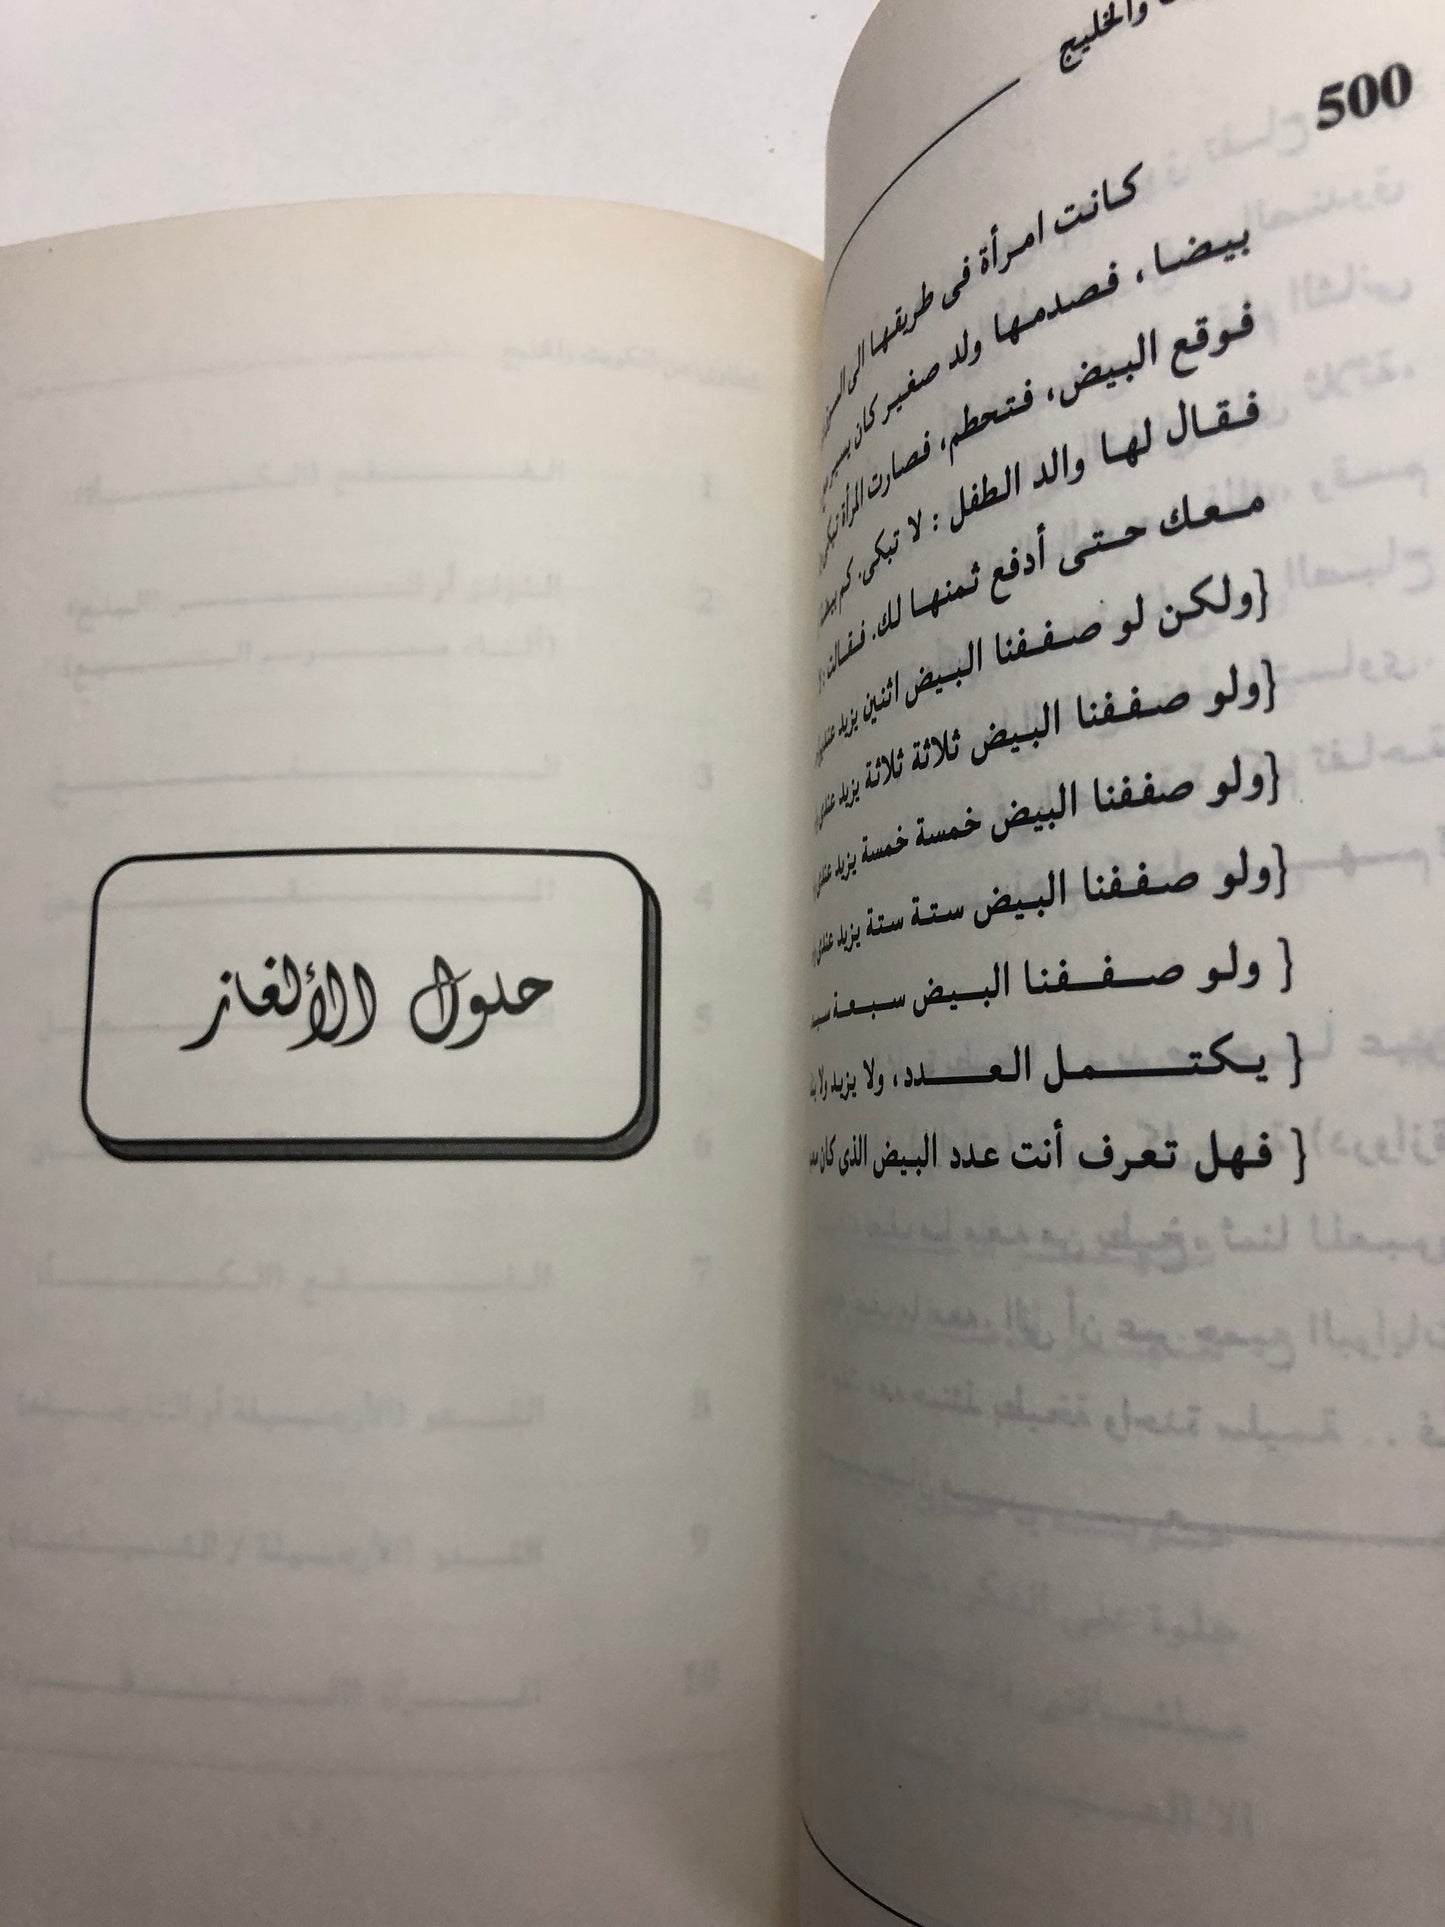 والخليج
500
كانت امرأة فى طريقها الى
بيضا، فصدمها ولد صغير كان يسير
فوقع البيض، فتحطم، فصارت المرأة تبكى
فقال لها والد الطفل : لا تبكى. كم
معك حتى أدفع ثمنها لك. فقالت :
{ولكن لو صففنا البيض اثنين يزيد
{ولو صففنا البيض ثلاثة ثلاثة يزيد عندى
{ولو صففنا البيض خمسة خمسة يزيد عندى
{ولو صففنا البيض ستة ستة يزيد عندى
{ ولو صففنا البيض سبعة
{ يكتمل العدد، ولا يزيد ولا
{ فهل تعرف أنت عدد البيض الذى كان
حلول الألغاز